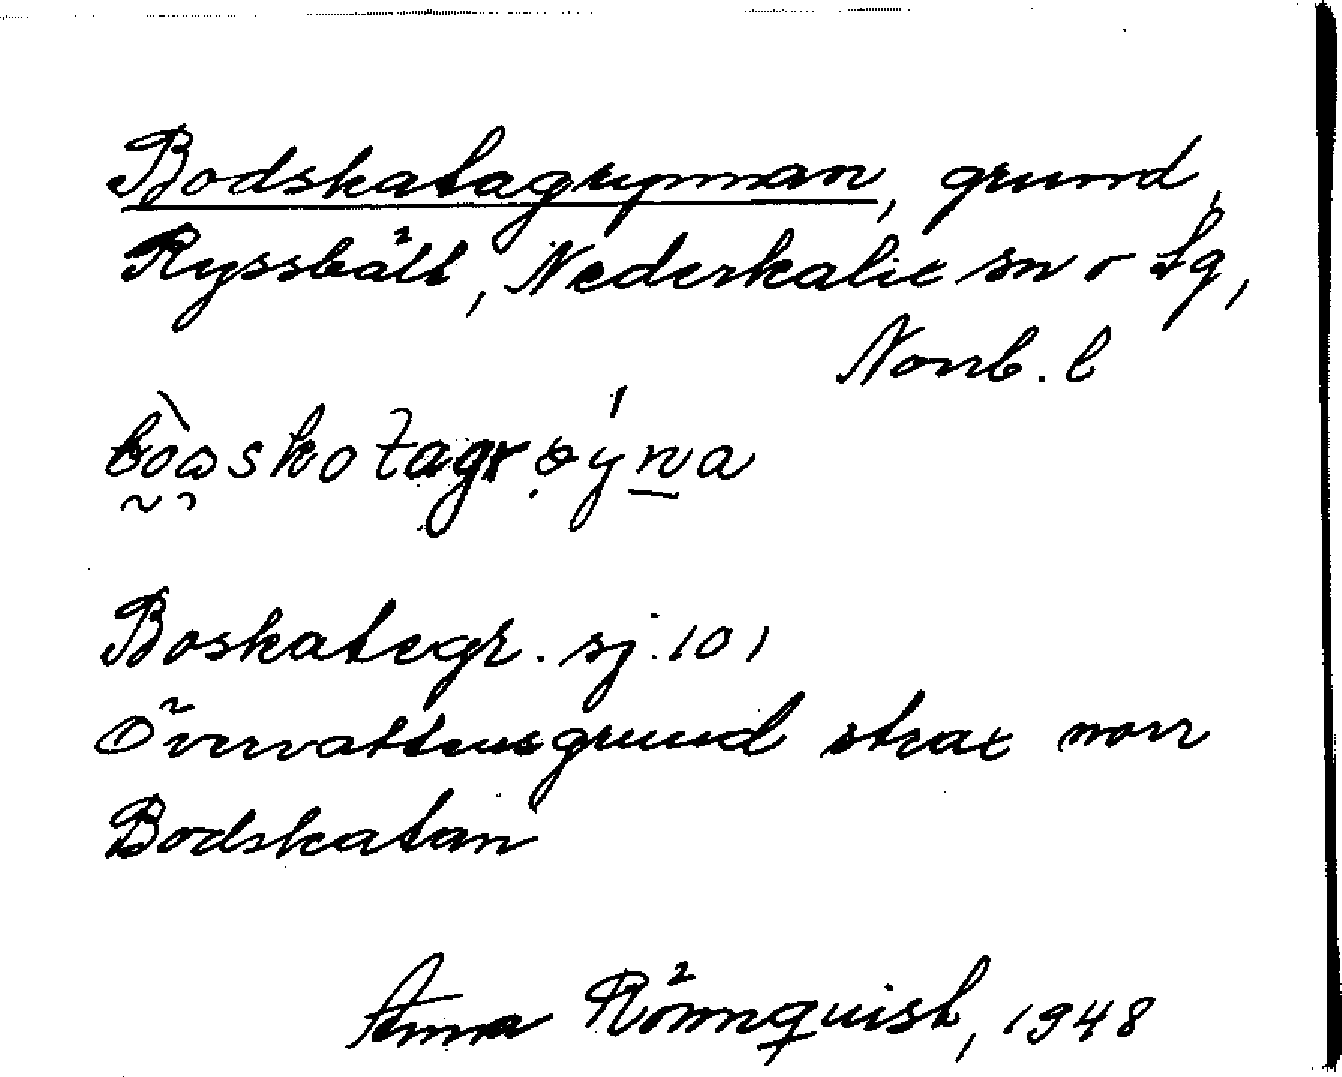 Bodskatagrynnan, grund,
Ryssbält, Nederkalix sn o tg,
Norrb. l
Boskategr. sj. 101
Övervattensgrund strax norr
Bodskatan
Anna Rönnquist, 1948